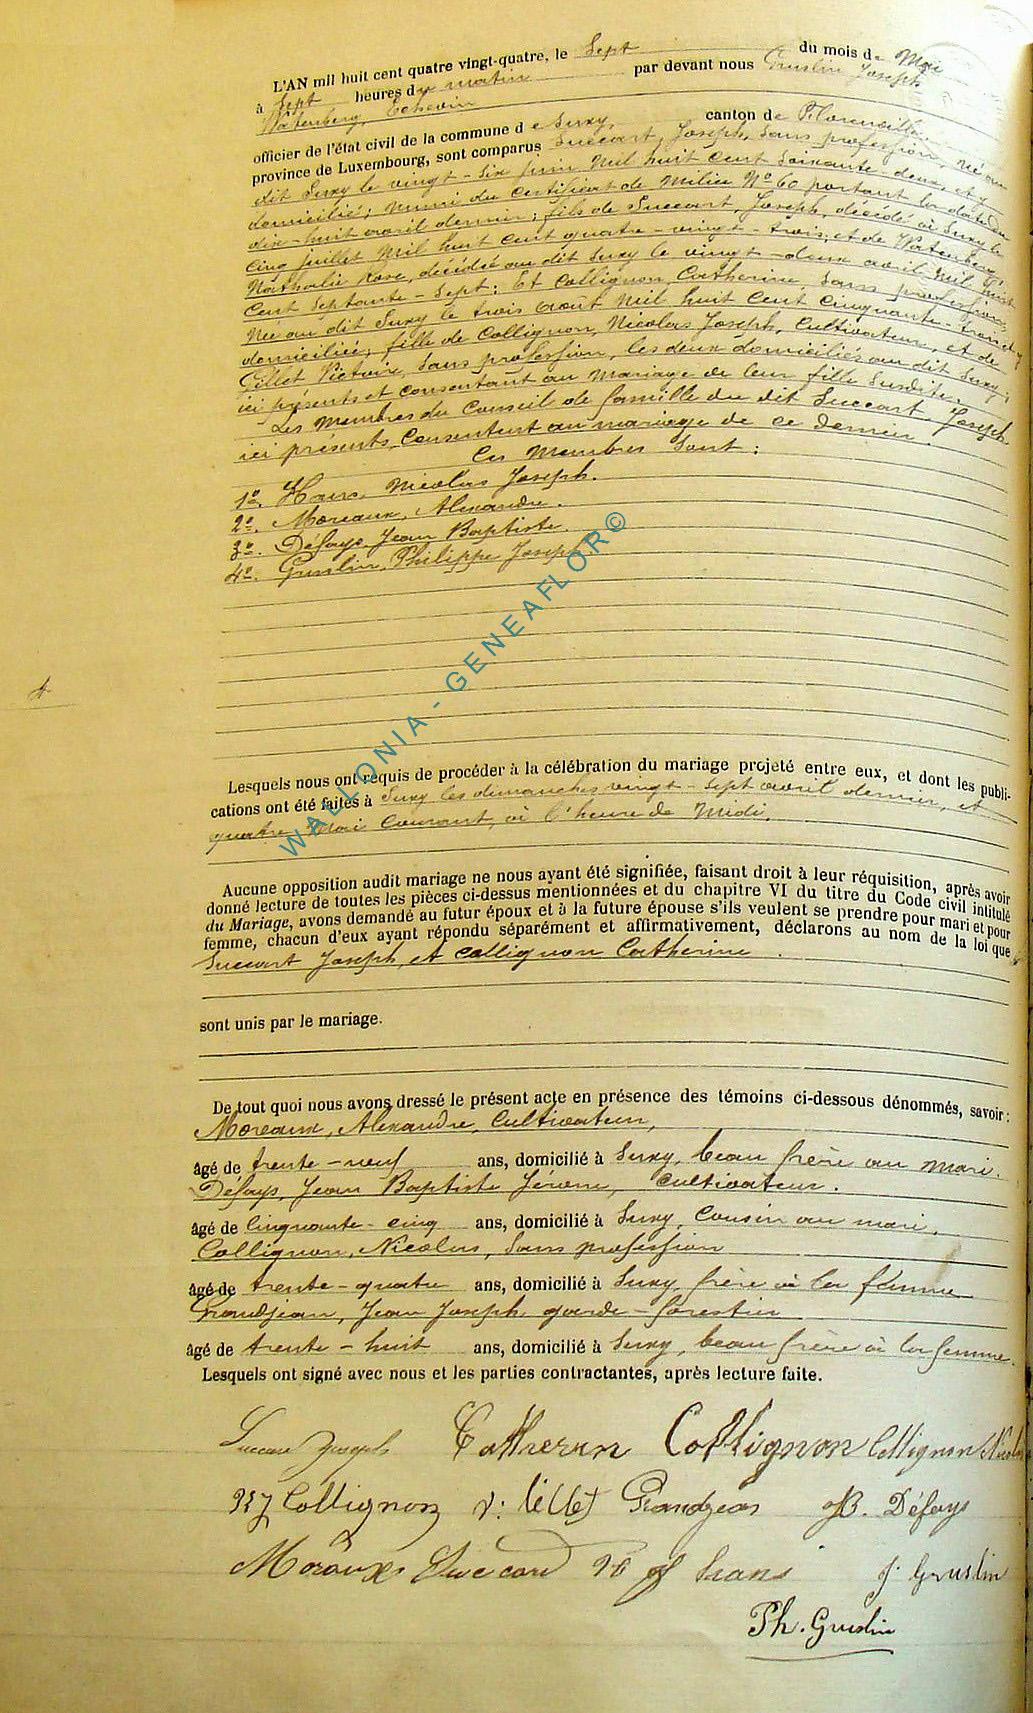 L'AN mil huit cent quatre vingt-quatre, le Sept du mois de Mai
à Sept heures du matin par devant nous Guslin Joseph
Watenberg, Echevin
officier de l'état civil de la commune de Suxy, canton de Florenville,
province de Luxembourg, sont comparus Succart, Joseph, Sans profession, né au
dit Suxy le vingt-six juin Mil huit cent Soixante-deux, et y
domicilié; muni du Certificat de Milice No 60 portant la date du
dix-huit avril dernier; fils de Succart, Joseph, décédé à Suxy le
cinq juillet Mil huit cent quatre-vingt-trois, et de Watenberg,
Nathalie Rose, décédée au dit Suxy le vingt-deux avril Mil huit
cent Septante-Sept; Et Collignon Catherine, Sans profession,
Née au dit Suxy le trois août Mil huit cent cinquante-trois et y
domiciliée; fille de Collignon, Nicolas Joseph, Cultivateur, et de
Gillet Victoire, Sans profession, les deux domiciliés au dit Suxy,
ici présents et consentant au mariage de leur fille Susdite.
Les Membres du Conseil de famille du dit Succart Joseph
ici présents, Consentent au mariage de ce dernier.
Ces Membres Sont :
1º. Hans, Nicolas Joseph.
2º. Moreaux, Alexandre.
3º. Défays, Jean Baptiste
4º. Guslin, Philippe Joseph
WALLONIA - GENEAFLOR©
Lesquels nous ont requis de procéder à la célébration du mariage projeté entre eux, et dont les publi-
cations ont été faites à Suxy les dimanches vingt-sept avril dernier, et
quatre Mai Courant, à l'heure de Midi.
Aucune opposition audit mariage ne nous ayant été signifiée, faisant droit à leur réquisition, après avoir
donné lecture de toutes les pièces ci-dessus mentionnées et du chapitre VI du titre du Code civil intitulé
du Mariage, avons demandé au futur époux et à la future épouse s'ils veulent se prendre pour mari et pour
femme, chacun d'eux ayant répondu séparément et affirmativement, déclarons au nom de la loi que
Succart Joseph, et Collignon Catherine
sont unis par le mariage.
De tout quoi nous avons dressé le présent acte en présence des témoins ci-dessous dénommés, savoir :
Moreaux, Alexandre, Cultivateur,
âgé de trente-neuf ans, domicilié à Suxy, beau frère au mari.
Défays, Jean Baptiste Jérome, Cultivateur.
âgé de Cinquante-cinq ans, domicilié à Suxy, Cousin au mari,
Collignon, Nicolas, Sans profession
âgé de trente-quatre ans, domicilié à Suxy, frère à la femme
Grandjean, Jean Joseph, garde-forestier
âgé de trente-huit ans, domicilié à Suxy, beau frère à la femme.
Lesquels ont signé avec nous et les parties contractantes, après lecture faite.
Succart Joseph Catherein Collignon Collignon Nicolas
Collignon v: Gillet Grandjean JB. Défays
Moreaux Succard Hans J. Guslin
Ph. Guslin